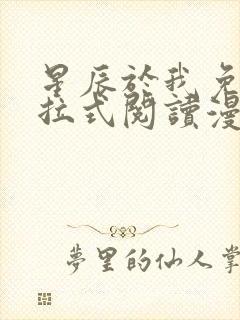 星辰於我免
拉式閱讀漫
夢里的仙人掌